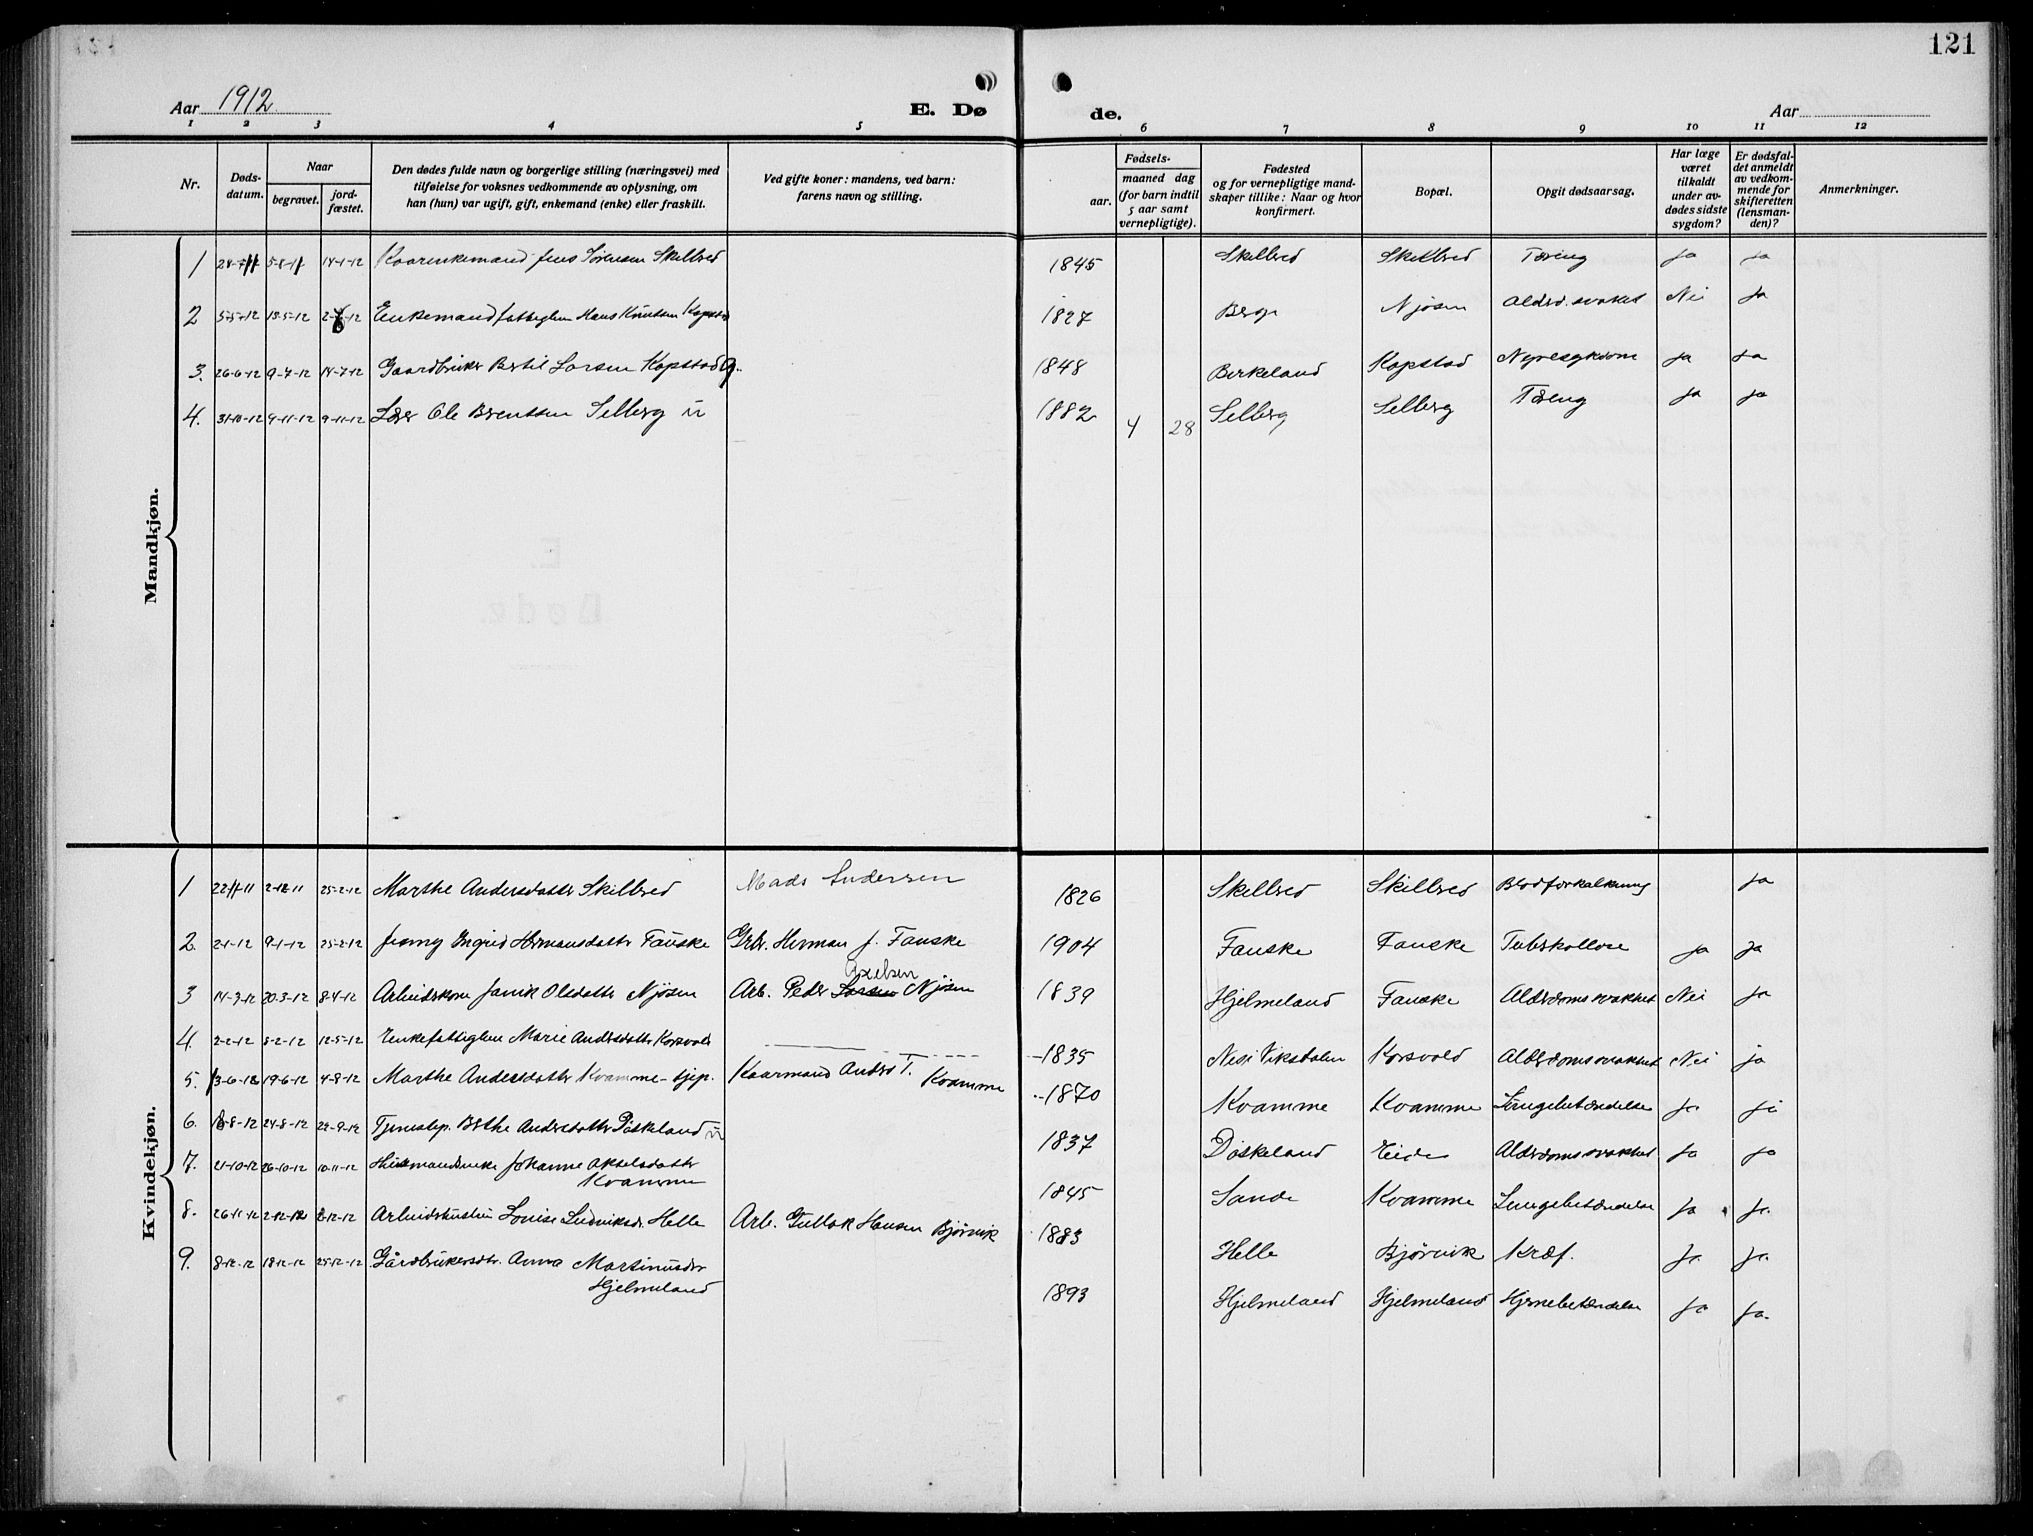 121
Aar 1912
E. Dø
de.
Aar
1 2 3 4 5 6 7 8 9 10 11 12
Nr.
Døds-
datum.
Naar
begravet.
jord-
fæstet.
Den dødes fulde navn og borgerlige stilling (næringsvei) med
tilføielse for voksnes vedkommende av oplysning, om
han (hun) var ugift, gift, enkemand (enke) eller fraskilt.
Ved gifte koner: mandens, ved barn:
farens navn og stilling.
Fødsels-
aar.
maaned dag
(for barn indtil
5 aar samt
vernepligtige).
Fødested
og for vernepligtige mand-
skaper tillike: Naar og hvor
konfirmert.
Bopæl.
Opgit dødsaarsag.
Har læge
været
tilkaldt
under av-
dødes sidste
sygdom?
Er dødsfal-
det anmeldt
av vedkom-
mende for
skifteretten
(lensman-
den)?
Anmerkninger.
Mandkjøn.
1 14-1-12 Kaarenkemand Jens Sørensen Skilbred 1845 Skilbred Skilbred Tæring Ja Ja
2 5-5-12 13-5-12 Enkemand fattiglem Hans Knutsen Kopstad 1827 Berge Njøsen Aldrd. svakhet Nei Ja
3. 26-6-12 9-7-12 14-7-12 Gaardbruker Bertil Larsen Kopstad g. 1848 Birkeland Kopstad Nyresygdom Ja Ja
4. 31-10-12 9-11-12 9-11-12 Lærer Ole Berentsen Selberg u 1882 4 28 Selberg Selberg Tæring Ja Ja
Kvindekjøn.
1 22-11-11 2-12-11 25-2-12 Marthe Andersdatter Skilbred Mads Andersen 1826 Skilbred Skilbred Blodforkalkning Ja
2. 2-1-12 9-1-12 25-2-12 Jenny Ingrid Hermansdatter Fauske Grbr. Herman J. Fauske 1904 Fauske Fauske Tuberkollose Ja Ja
3 14-3-12 20-3-12 8-4-12 Arbeidskone Janik Olsdatter Njøsen Arb. Peder Larsen Axelsen Njøsen 1839 Hjelmeland Fauske Alderdomssvakhet Nei Ja
4. 2-2-12 8-2-12 12-5-12 Enkefattiglem Marie Andersdatter Korsvold 1835 Nesi Viksdalen Korsvold Alderdomssvakhet Nei ja
5. 13-6-12 19-6-12 4-8-12 Marthe Andersdatter Kvamme - tjep. Kaarmand Anders T. Kvamme 1870 Kvamme Kvamme Lungebetændelse Ja ja
6. 18-8-12 24-8-12 22-9-12 Tjenestep. Berthe Andersdatter Døskeland u 1837 Døskeland Eide Alderdomssvakhet Ja Ja
7. 21-10-12 26-10-12 10-11-12 Husmandsenke Johanne Akselsdatter
Kvamme 1845 Sande Kvamme Lungebetændelse Ja Ja.
8. 26-11-12 2-12-12 2-12-12 Arbeidshustru Louise Ludviksdr. Helle Arb. Gullak Hansen Bjørvik 1883 Helle Bjørvik Kræf. Ja. Ja.
9. 8-12-12 18-12-12 25-12-12 Gårdbrukersdtr. Anna Martinusdr
Hjelmeland 1893 Hjelmeland Hjelmeland Hjernebetændelse Ja Ja.